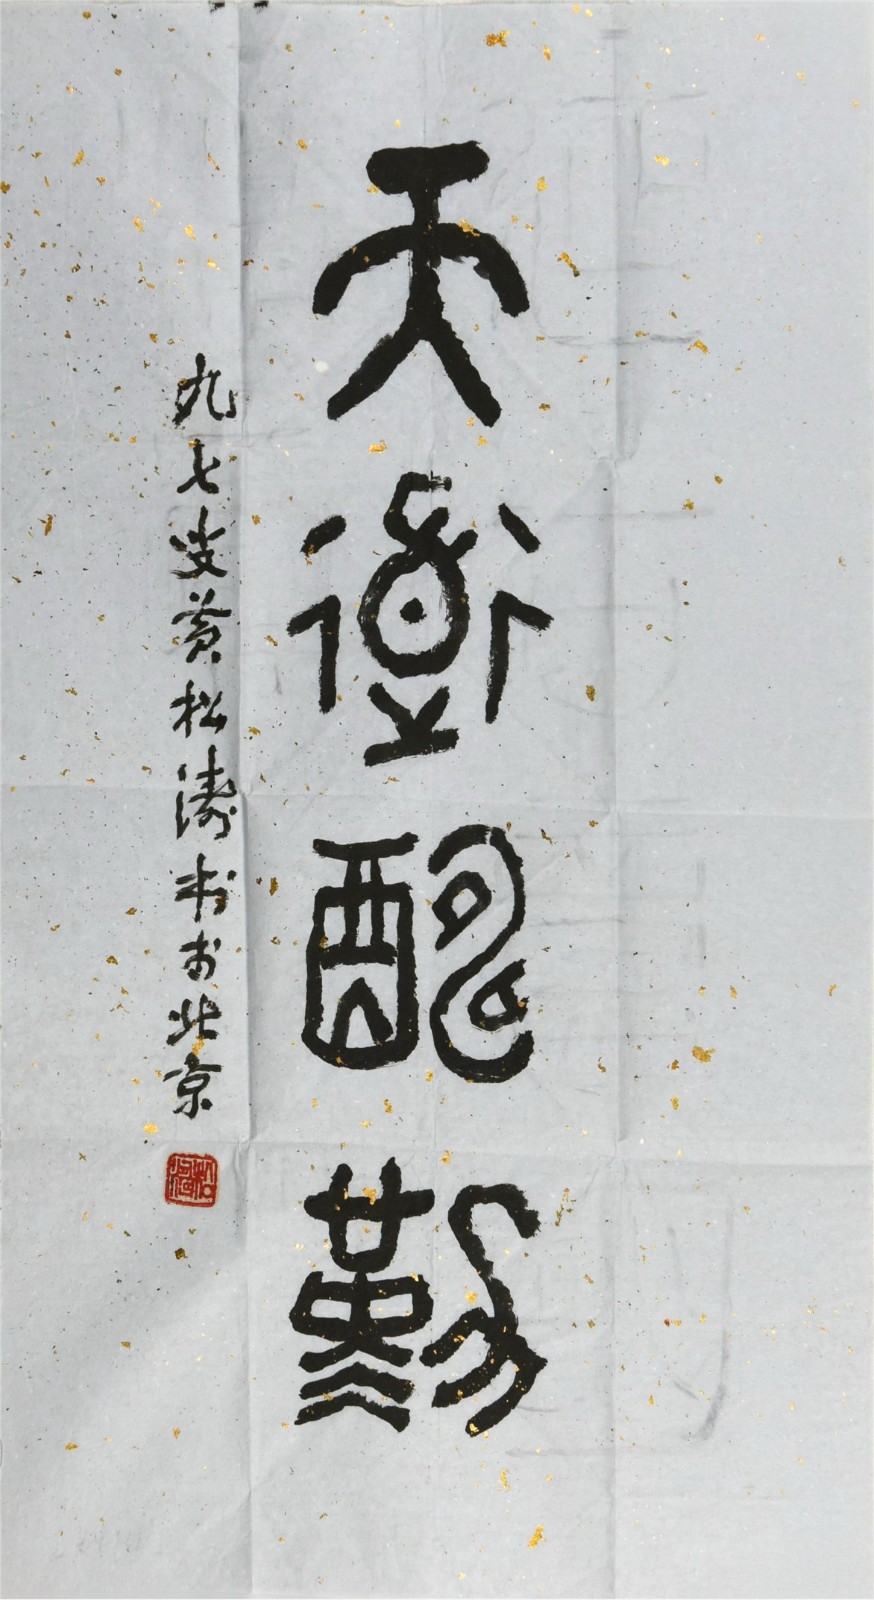 天道酬勤
九七叟黄松涛书于北京